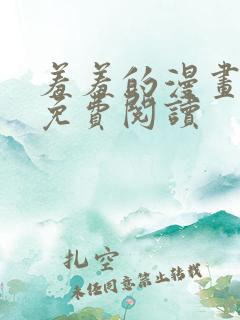 羞羞的漫畫
免費閱讀
扎空
未经同意禁止转载